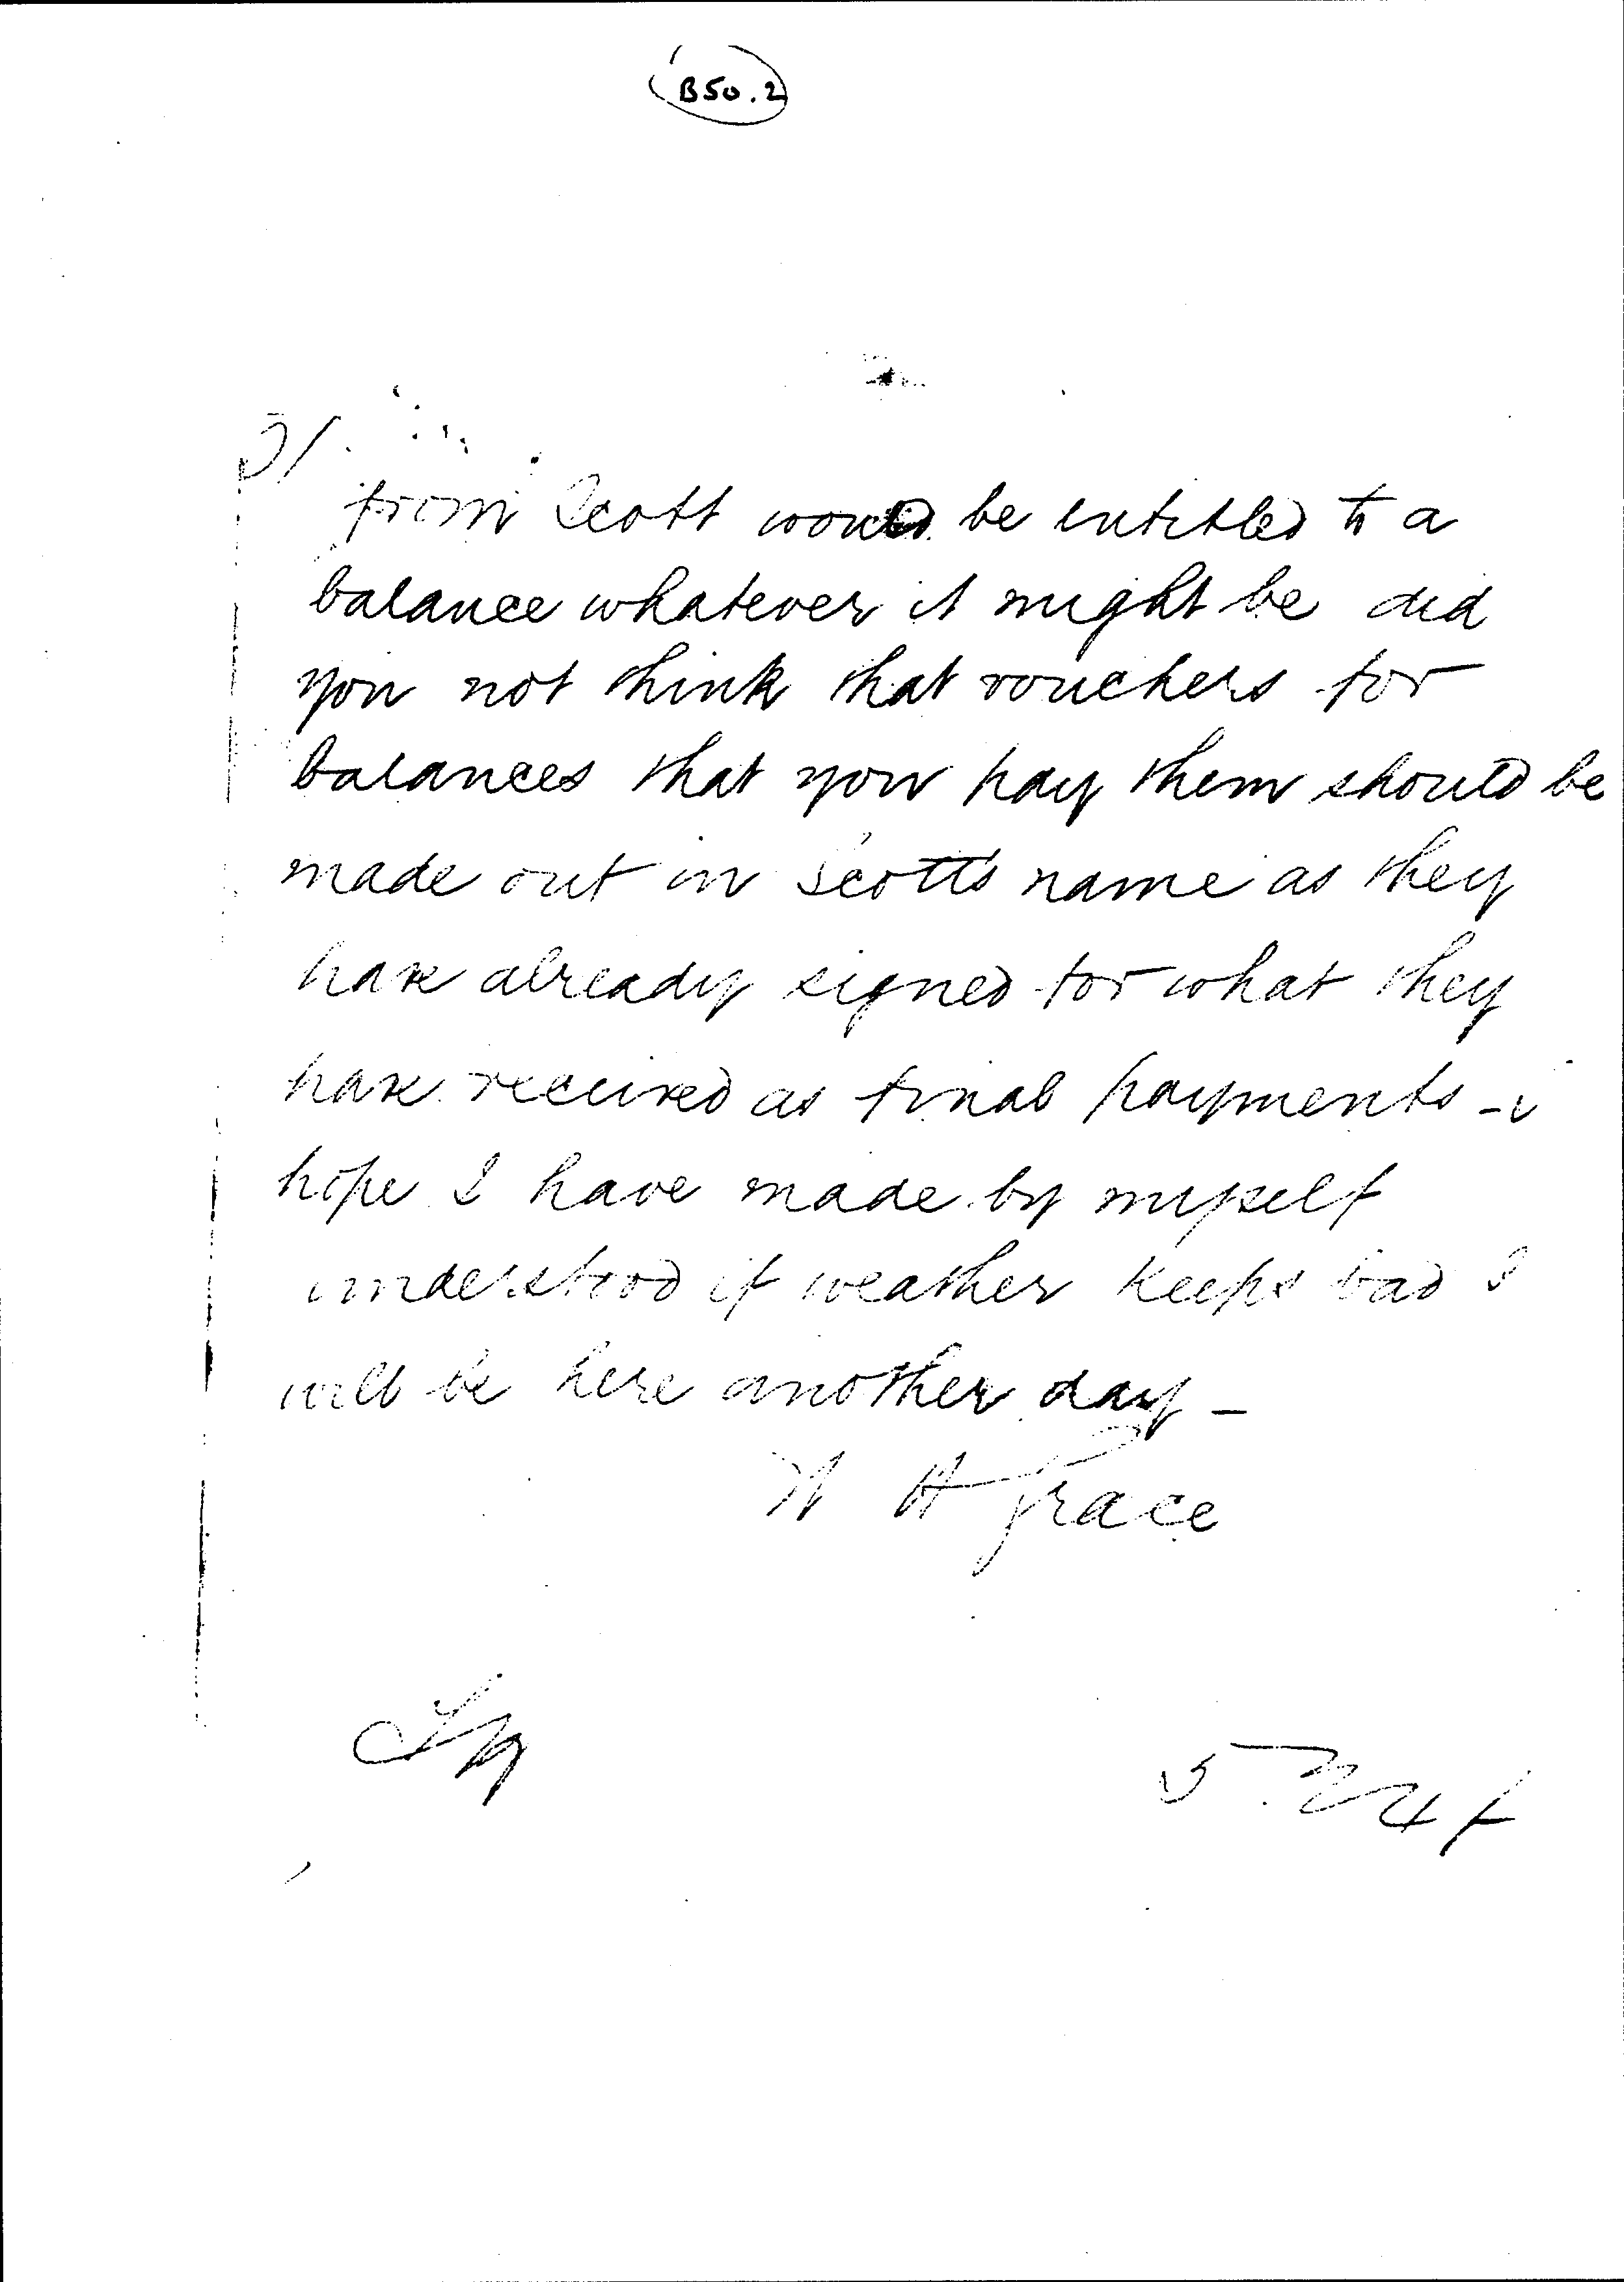 B50.2
2/.
from Scott would be entitled to a
balance whatever it might be did
you not think that vouchers for
balances that you pay them should be
made out in Scotts name as they
have already signed for what they
have received as final payments - i
hope I have made by myself
understood if weather keeps bad I
will be here another day -
W H Grace